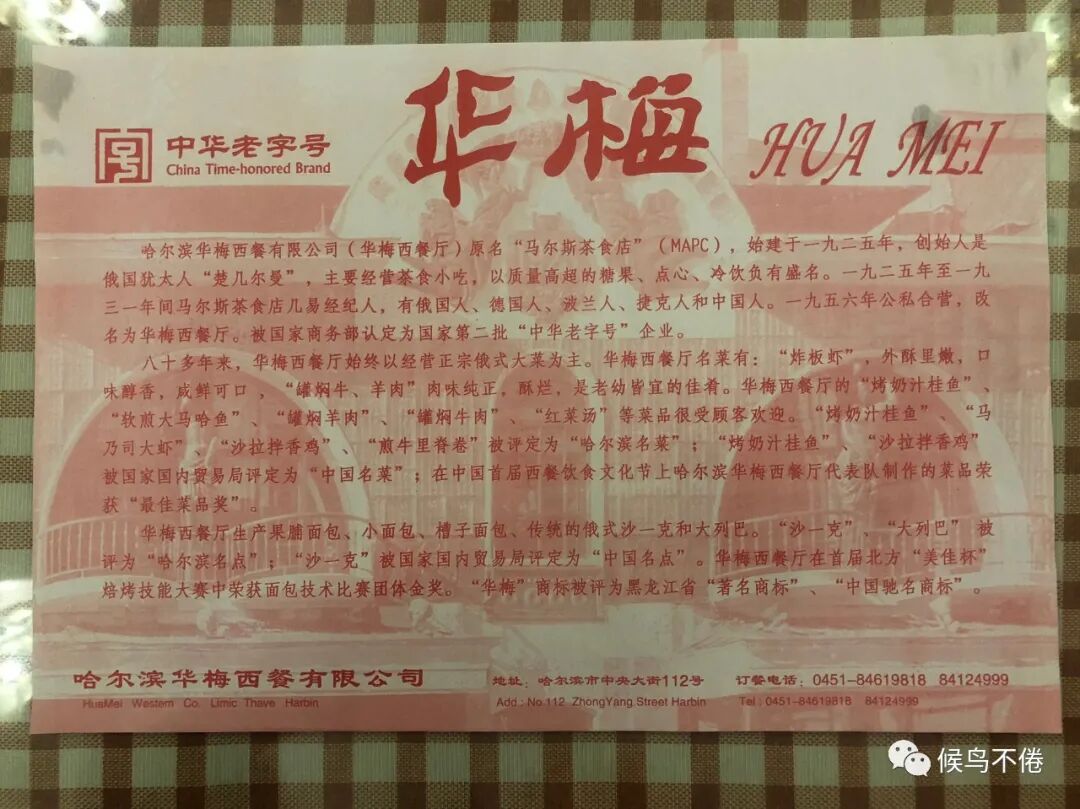 华梅
HUA MEI
中华老字号
China Time-honored Brand
哈尔滨华梅西餐有限公司（华梅西餐厅）原名“马尔斯茶食店”（MAPC），始建于一九二五年，创始人是
俄国犹太人“楚几尔曼”，主要经营茶食小吃，以质量高超的糖果、点心、冷饮负有盛名。一九二五年至一九
三一年间马尔斯茶食店几易经纪人，有俄国人、德国人、波兰人、捷克人和中国人。一九五六年公私合营，改
名为华梅西餐厅。被国家商务部认定为国家第二批“中华老字号”企业。
八十多年来，华梅西餐厅始终以经营正宗俄式大菜为主。华梅西餐厅名菜有：“炸板虾”，外酥里嫩，口
味醇香，咸鲜可口，“罐焖牛、羊肉”肉味纯正，酥烂，是老幼皆宜的佳肴。华梅西餐厅的“烤奶汁桂鱼”、
“软煎大马哈鱼”、“罐焖羊肉”、“罐焖牛肉”、“红菜汤”等菜品很受顾客欢迎。“烤奶汁桂鱼”、“马
乃司大虾”、“沙拉拌香鸡”、“煎牛里脊卷”被评定为“哈尔滨名菜”；“烤奶汁桂鱼”、“沙拉拌香鸡”
被国家国内贸易局评定为“中国名菜”；在中国首届西餐饮食文化节上哈尔滨华梅西餐厅代表队制作的菜品荣
获“最佳菜品奖”。
华梅西餐厅生产果脯面包、小面包、槽子面包、传统的俄式沙一克和大列巴。“沙一克”、“大列巴”被
评为“哈尔滨名点”；“沙一克”被国家国内贸易局评定为“中国名点”。华梅西餐厅在首届北方“美佳杯”
焙烤技能大赛中荣获面包技术比赛团体金奖。“华梅”商标被评为黑龙江省“著名商标”、“中国驰名商标”。
哈尔滨华梅西餐有限公司
HuaMei Western Co. Limic Thave Harbin
地址：哈尔滨市中央大街112号
Add.: No.112 ZhongYang Street Harbin
订餐电话：0451-84619818 84124999
Tel: 0451-84619818 84124999
候鸟不倦